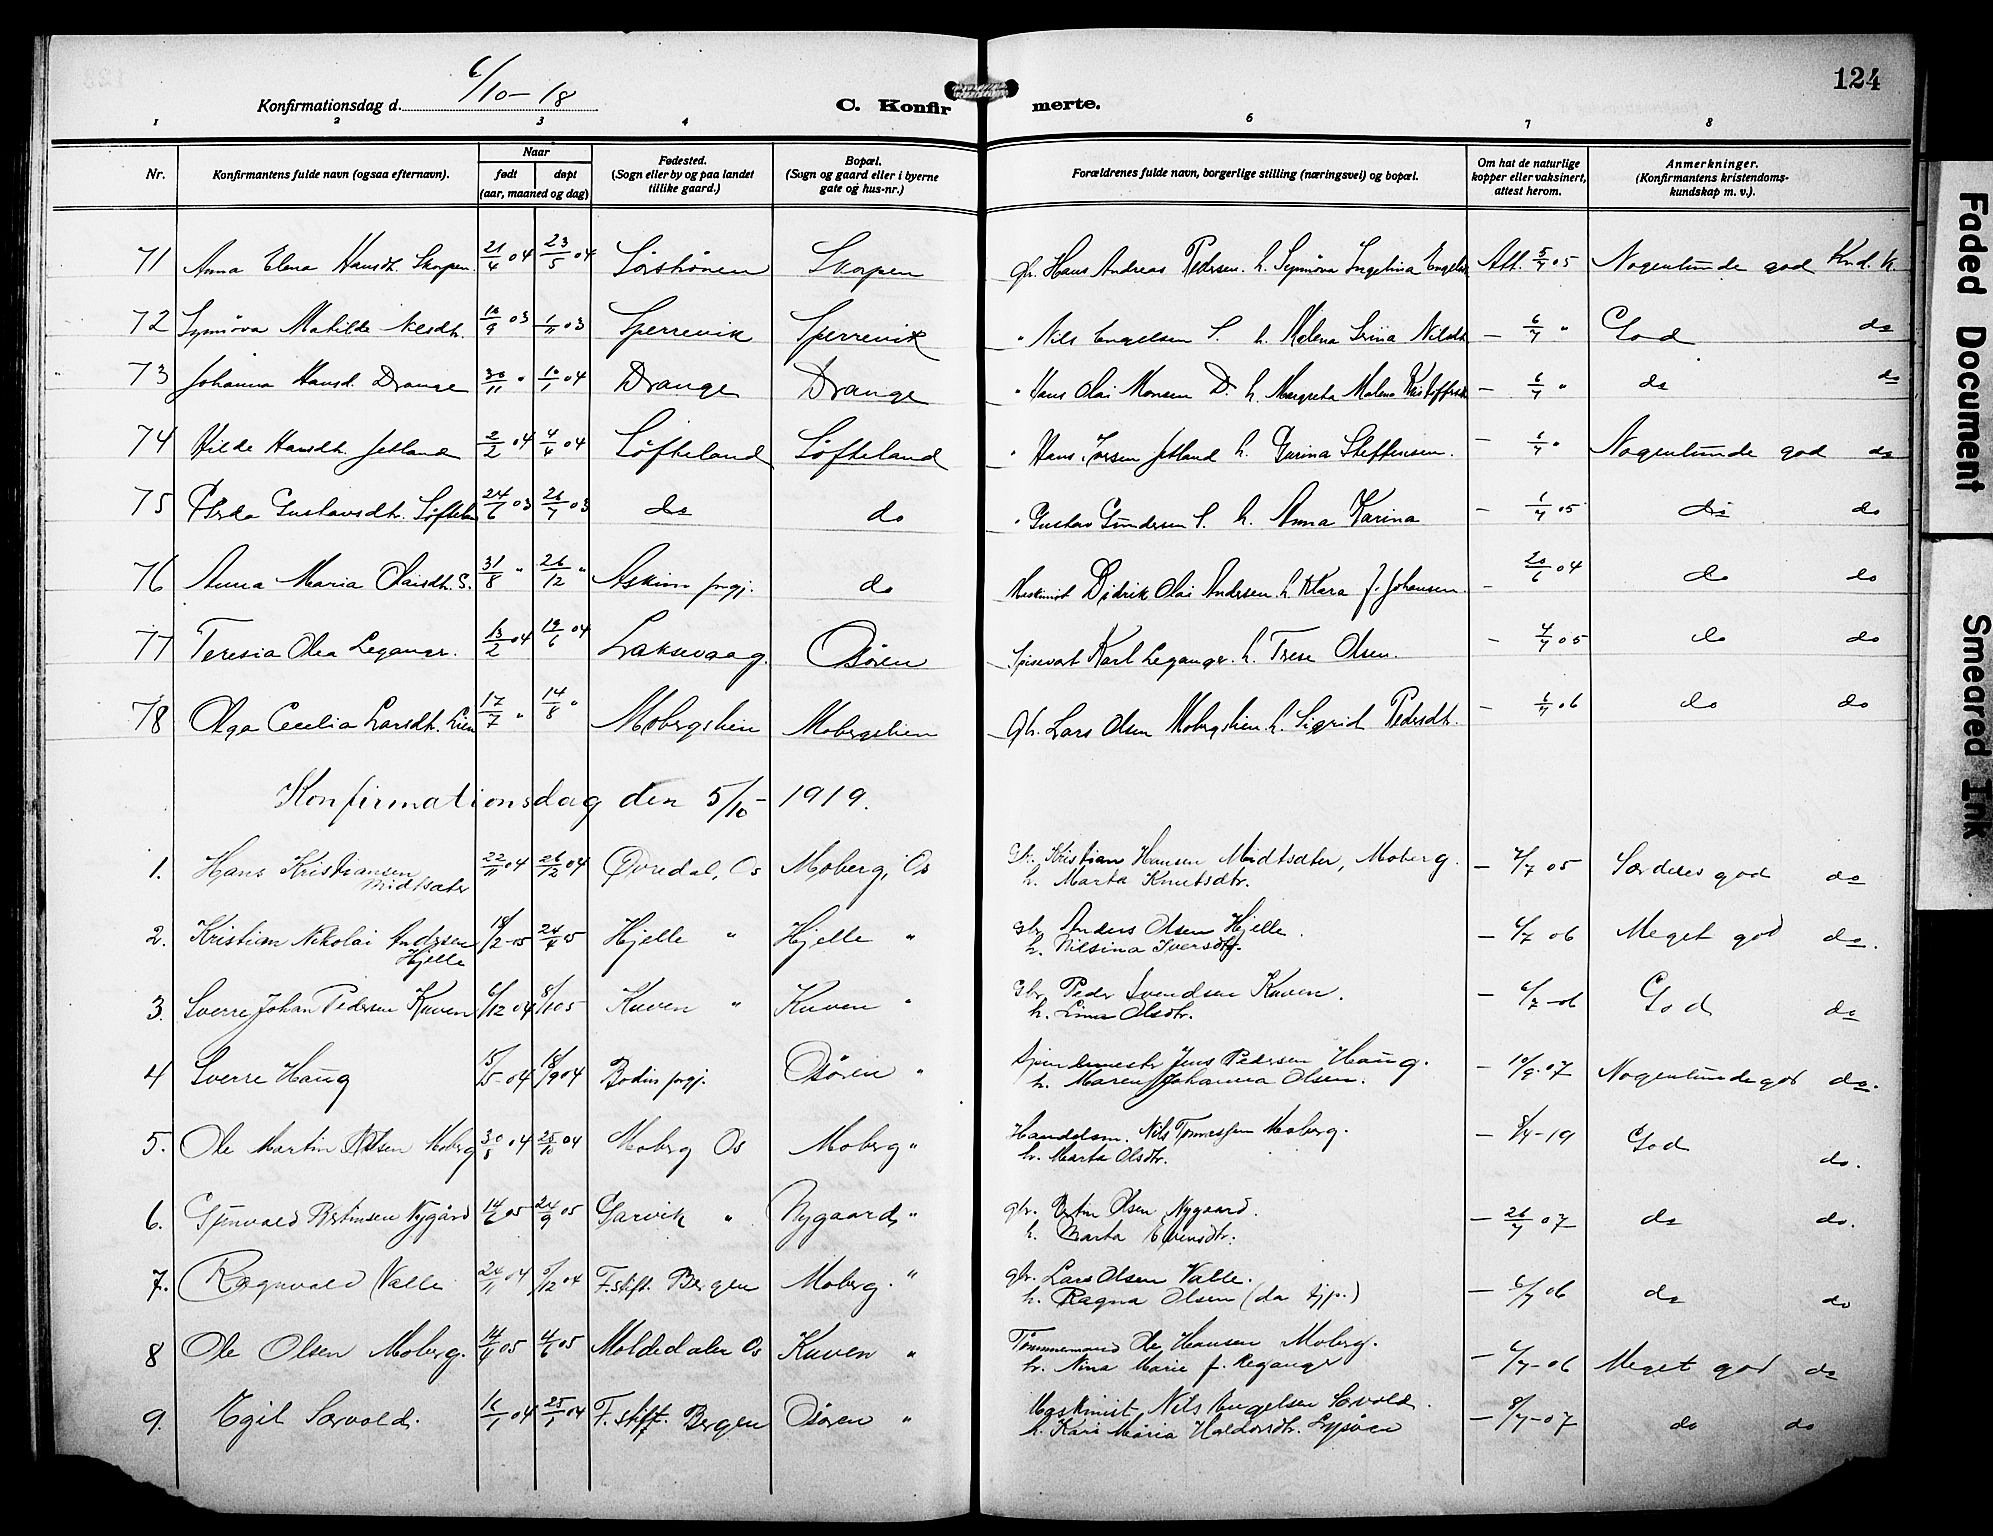 124
Konfirmationsdag d. 6/10 - 18
C. Konfirmerte.
1 2 3 4 5 6 7 8
Nr.
Konfirmantens fulde navn (ogsaa efternavn).
Naar
født døpt
(aar, maaned og dag)
Fødested.
(Sogn eller by og paa landet
tillike gaard.)
Bopæl.
(Sogn og gaard eller i byerne
gate og hus-nr.)
Forældrenes fulde navn, borgerlige stilling (næringsvei) og bopæl.
Om hat de naturlige
kopper eller vaksinert,
attest herom.
Anmerkninger.
(Konfirmantens kristendoms-
kundskap m. v.).
71 Anna Elena Hansdt. Skorpen. 21/4 04 23/5 04 Sørstrønen Skorpen Gbr. Hans Andreas Pedersen. h. Synnøva Ingelina Att. 5/7 05 Nogenlunde god Knd. k.
72 Synnøva Matilde Nilsdt. 10/9 03 1/11 03 Sperrevik Sperrevik " Nils Engelsen S. h. Malena Nilsdt. - 6/7 " God do
73 Johanna Hansd. Drange 30/11 " 10/1 04 Drange Drange " Hans Olai Monsen D. h. Margreta Malena - 6/7 " do do
74 Hilde Hansdt. Jetland 2/2 04 4/4 04 Søfteland Søfteland " Hans Jetland h. Gurina Steffensen. - 6/7 " Nogenlunde god do
75 Gustavsdtr. 24/6 03 26/7 03 do do " Gustav Gundersen S. h. Anna Karina - 6/7 05 do do
76 Anna Maria S. 31/8 " 26/12 " Askim prgj. do Maskinist Didrik Olai Andersen h. Klara f. Johansen - 20/6 04 do do
77 Teresia Olea Leganger. 13/2 04 19/6 04 Laksevaag. Osøren Spisevært Karl Leganger. h. Trese Olsen. - 4/7 05 do do
78 Olga Cecilia Larsdt. Lien 17/7 " 14/8 " Mobergslien Mobergslien Gbr. Lars Olsen Mobergslien. h. Sigrid Pedersdt. - 6/7 06 do do
Konfirmationsdag den 5/10 - 1919.
1. Hans Kristiansen 22/11 04 26/12 04 Øvredal, Os Moberg, Os Gbr. Kristian Hansen Midtsæter, Moberg. - 7/7 05 Særdeles god do
Midtsæter h. Marta Knutsdtr.
2. Kristian Nikolai Andersen 18/2 - 05 24/4 05 Hjelle " Hjelle " Gbr. Anders Olsen Hjelle. - 6/7 06 Meget god do.
Hjelle h. Nilsina Iversdtr.
3. Sverre Johan Pedersen Kuven 6/12 04 8/1 05 Kuven " Kuven " Gbr. Peder Svendsen Kuven. - 6/7 - 06 God do
h. Lina Olsdtr.
4 Sverre Haug 15/5 - 04 18/9 04 Bodin prgj. Osøren " Spindemester Jens Pedersen Haug. - 10/9 - 07 Nogenlunde god do.
h. Maren Johanna Olsen.
5. Ole Martin Nilsen Moberg 30/8 04 25/10 04 Moberg Os Moberg " Handelsm. Nils Tønnessen Moberg. - 8/4 - 19 God do.
h. Marta Olsdtr.
6. Gunvald Bertinsen Nygård 14/6 05 24/9 05 Garvik " Nygaard, " gbr. Bertin Olsen Nygaard. - 26/7 07 do do.
h. Marta
7. Ragnvald Valle 24/11 04 5/12 04 F.stift. Bergen Moberg. " gbr. Lars Olsen Valle. - 6/7 06 do do
h. Ragna Olsen (da tjp.)
8 Ole Olsen Moberg. 14/4 05 4/6 05 Moldedalen Os Kuven " Tømmermand Ole Hansen Moberg. - 6/7 - 06 Meget god do
h. Nina Marie f. Leganger
9. Egil Sørvold. 16/1 04 25/1 04 F. stift. Bergen Osøren " Maskinist Nils Engelsen Sørvold. - 8/7 - 07 do do
h. Kari Maria Haldorsdtr. Lysøen
Faded Document
Smeared Ink